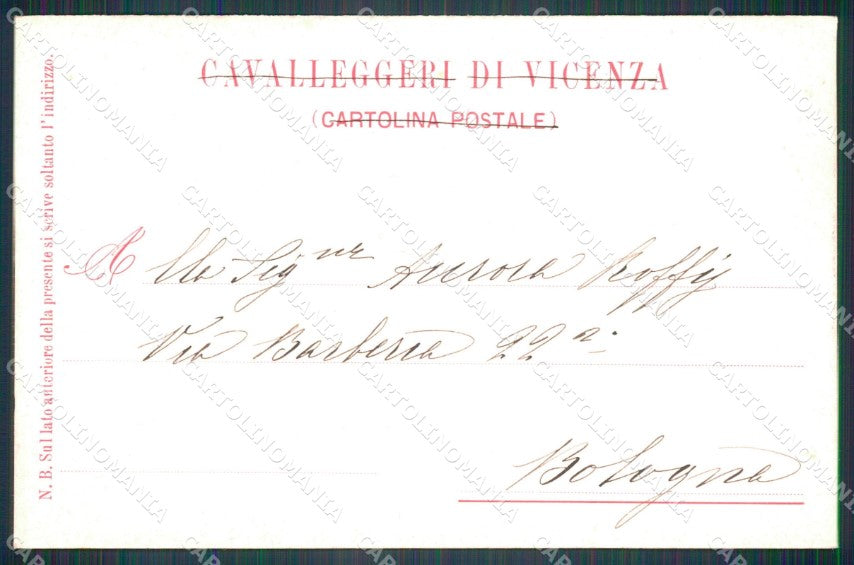 CAVALLEGGERI DI VICENZA
(CARTOLINA POSTALE)
N. B. Sul lato anteriore della presente si scrive soltanto l'indirizzo.
Alla Sig.nr Aurora Roffi
Via Barberia 22 a.
Bologna
CARTOLINOMANIA